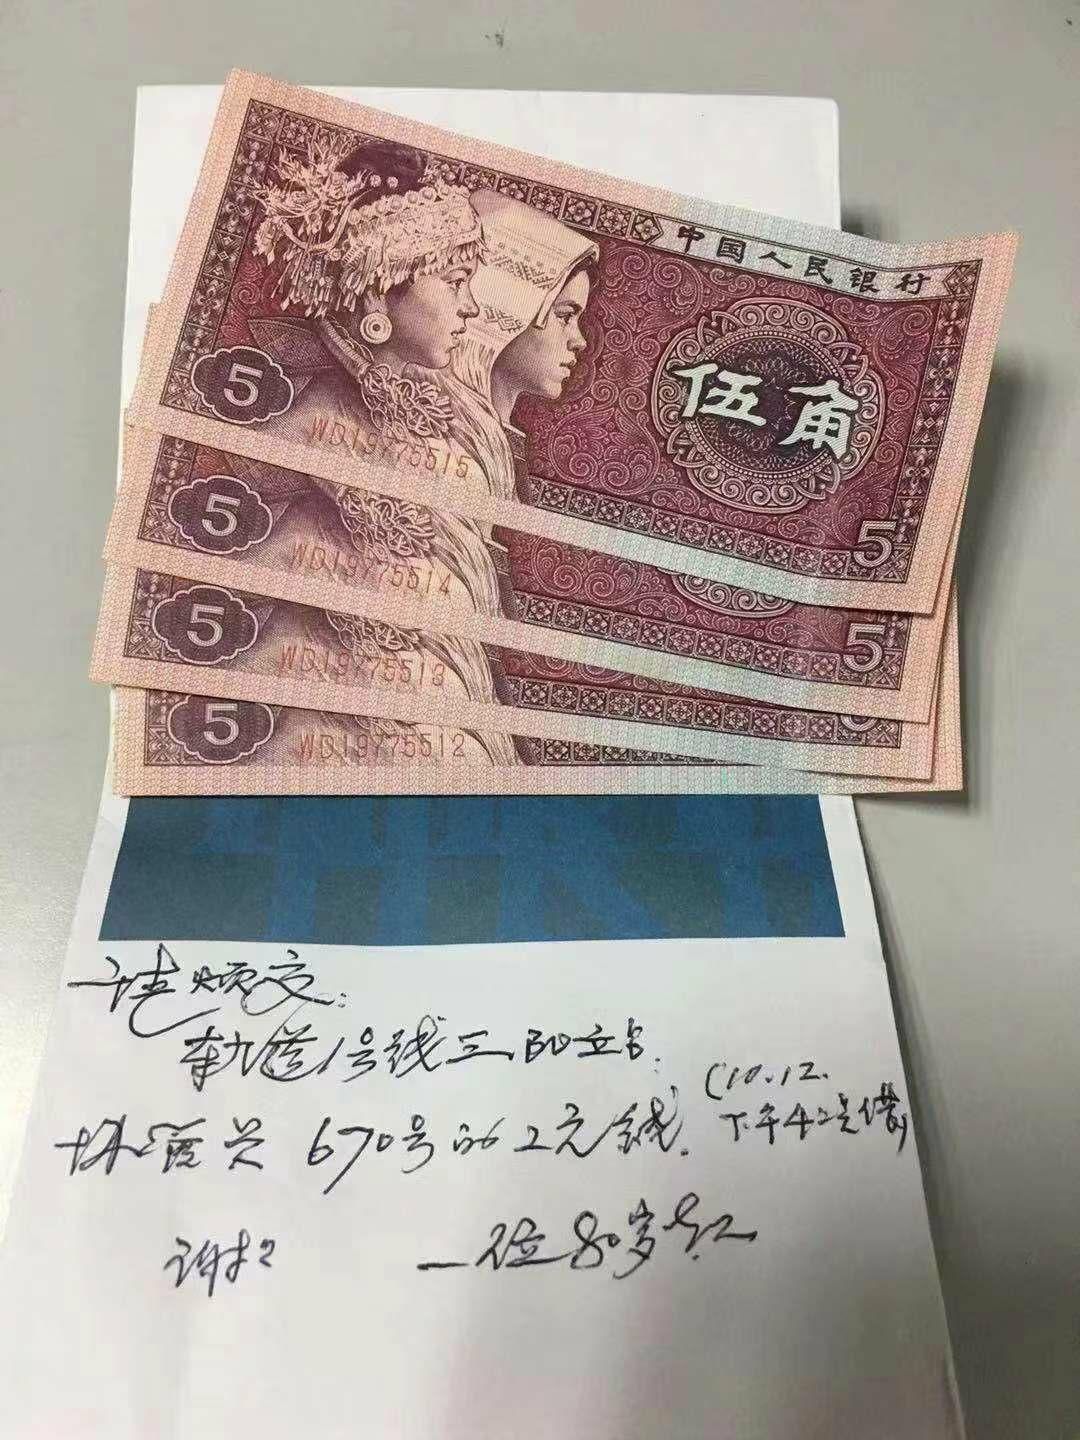 中国人民银行
伍角
5
WD19775515
5
5
WD19775514
5
5
WD19775513
5
WD19775512
请烦交:
轨道1号线三阳站:
670号的2元钱.
(10.12.
下午
谢谢
一位80岁老